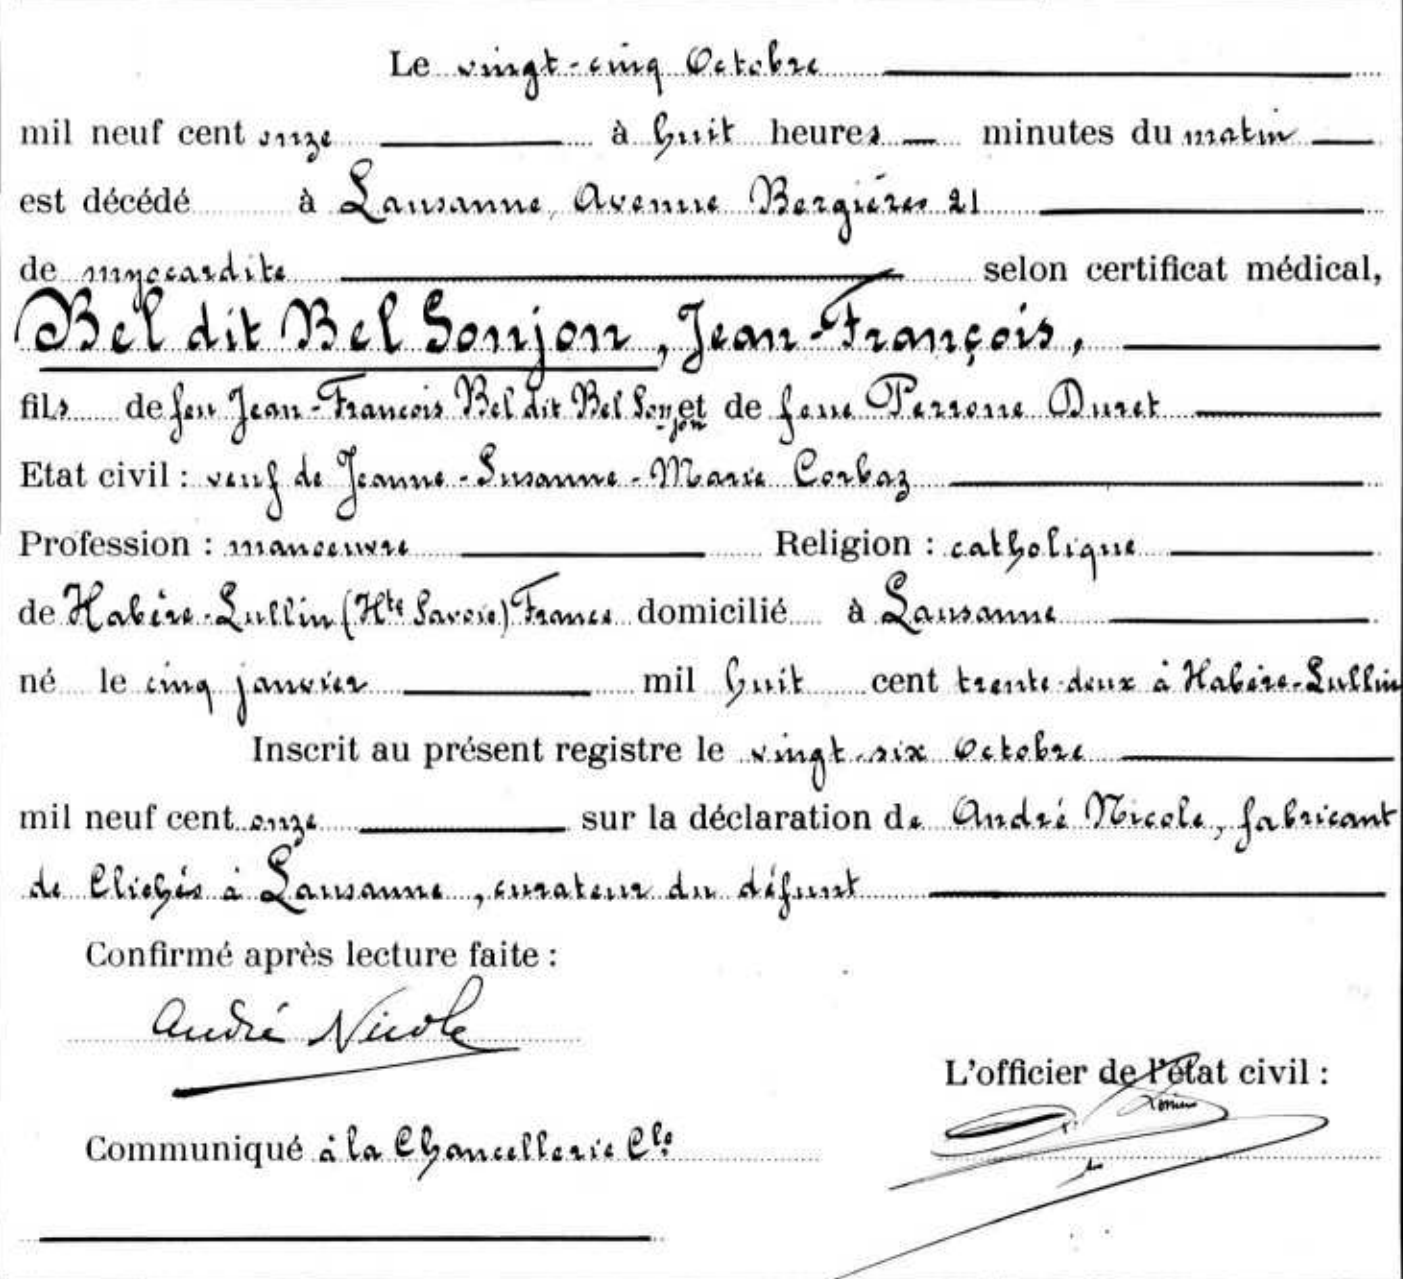 Le vingt-cinq Octobre
mil neuf cent onze à huit heures minutes du matin
est décédé à Lausanne, Avenue Bergières 21
de myocardite selon certificat médical,
Bel dit Bel Sonjon, Jean-François,
fils de feu Jean-François Bel dit Bel Sonjon et de feue Perrone Duret
Etat civil : veuf de Jeanne-Susanne-Marie Corbaz
Profession : manoeuvre Religion : catholique
de Habère-Lullin (Hte Savoie) France domicilié à Lausanne
né le cinq janvier mil huit cent trente-deux à Habère-Lullin
Inscrit au présent registre le vingt-six Octobre
mil neuf cent onze sur la déclaration de André Nicole, fabricant
de Clichés à Lausanne, curateur du défunt
Confirmé après lecture faite :
André Nicole
L'officier de l'état civil :
Communiqué à la Chancellerie Cle